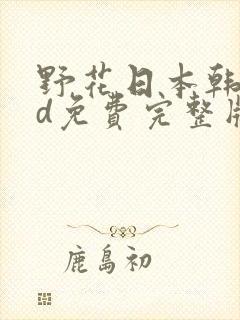 野花日本韩
d免費完整版
鹿島初